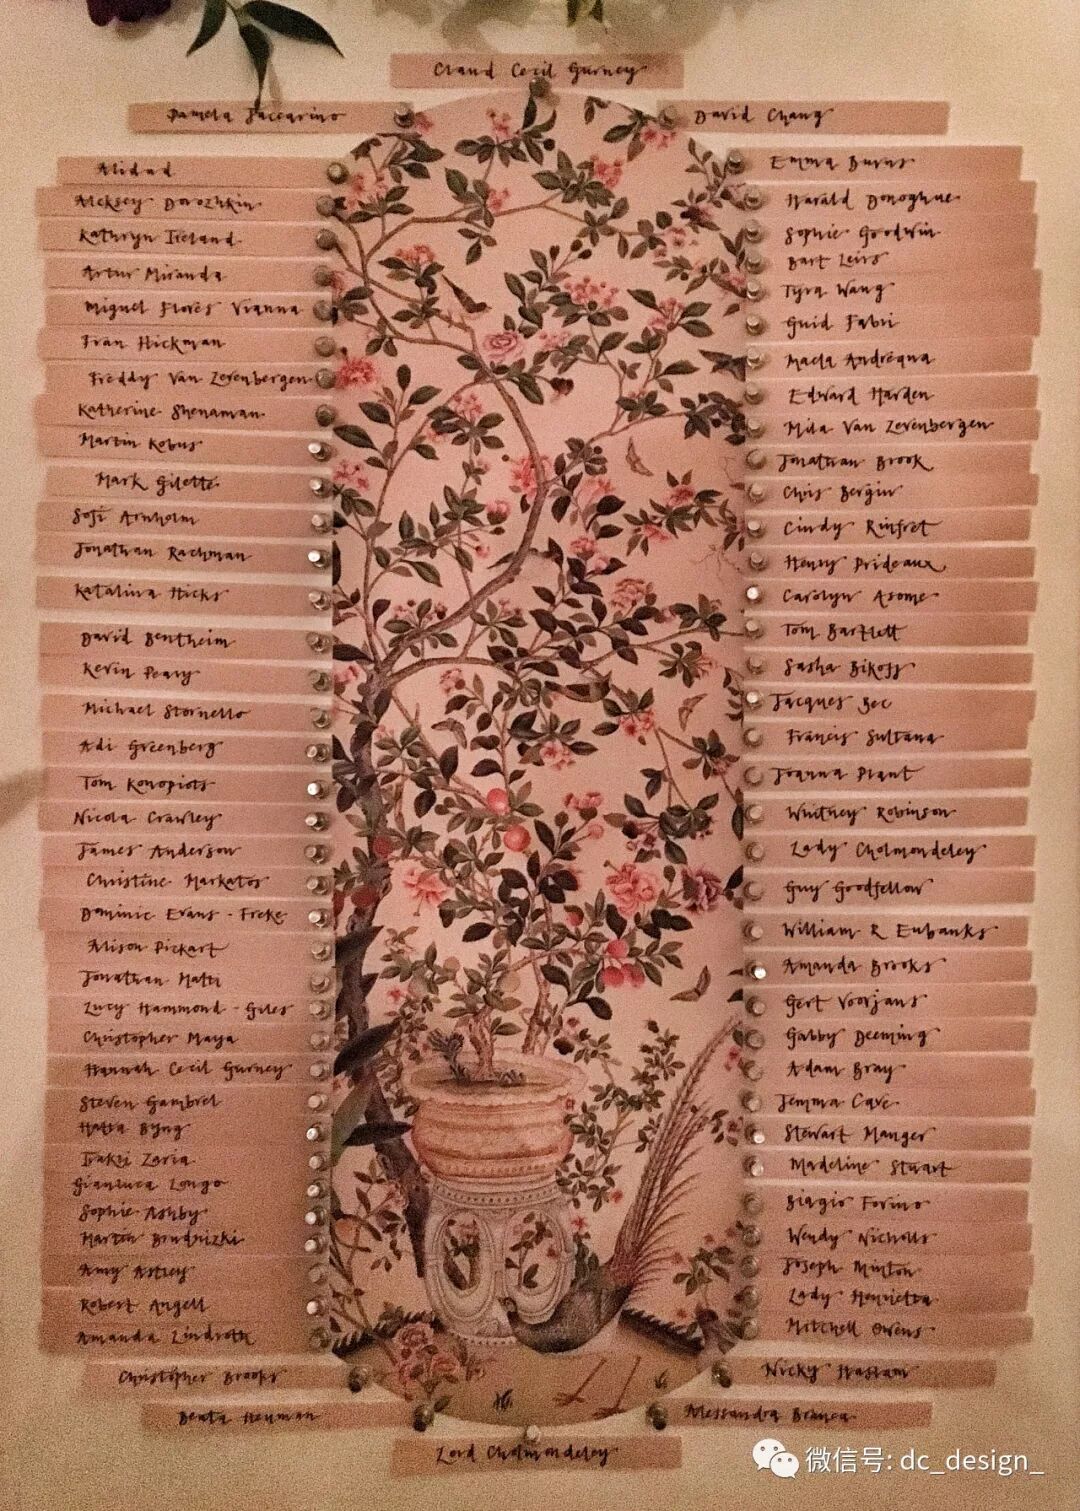 Claud Cecil Gurney
Pamela Jaccarino
David Chang
Alidad
Aleksey Dorozhkin
Kathryn Ireland
Artur Miranda
Miguel Flores Vianna
Fran Hickman
Freddy Van Zevenbergen
Katherine Shenaman
Martin Kobus
Mark Gilette
Sofi Arnholm
Jonathan Rachman
Katalina Hicks
David Bentheim
Kevin Peavy
Michael Stornello
Adi Greenberg
Tom Konopiots
Nicola Crawley
James Anderson
Christine Markatos
Dominic Evans - Freke
Alison Pickart
Jonathan Matti
Lucy Hammond - Giles
Christopher Maya
Hannah Cecil Gurney
Steven Gambrel
Hatta Byng
Irakli Zaria
Gianluca Longo
Sophie Ashby
Marten Brudnizki
Amy Astley
Robert Angell
Amanda Lindroth
Christopher Brooks
Beata Heuman
Emma Burns
Harald Donoghue
Sophie Goodwin
Bart Leirs
Tyra Wang
Guid Fabri
Maela Andréqna
Edward Harden
Mila Van Zevenbergen
Jonathan Brook
Chris Bergin
Cindy Rinfret
Henry Prideaux
Carolyn Asome
Tom Bartlett
Sasha Bikoff
Jacques Bec
Francis Sultana
Joanna Plant
Whitney Robinson
Lady Cholmondeley
Guy Goodfellow
William R Eubanks
Amanda Brooks
Gert Voorjans
Gabby Deeming
Adam Bray
Jemma Cave
Stewart Manger
Madeline Stuart
Biagio Forino
Wendy Nicholls
Joseph Minton
Lady Henrietta
Mitchell Owens
Nicky Haslam
Alessandra Branca
Lord Cholmondeley
微信号: dc_design_